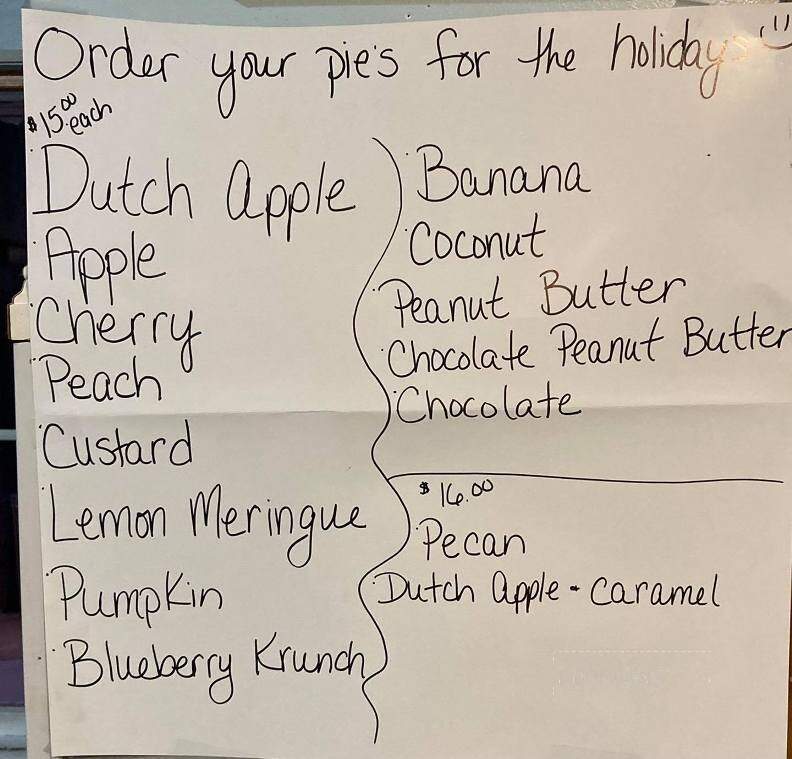 Order your pie's for the holidays :)
$15.00 each
Dutch apple
Apple
Cherry
Peach
Custard
Lemon Meringue
Pumpkin
Blueberry Krunch
Banana
Coconut
Peanut Butter
Chocolate Peanut Butter
Chocolate
$16.00
Pecan
Dutch apple - caramel